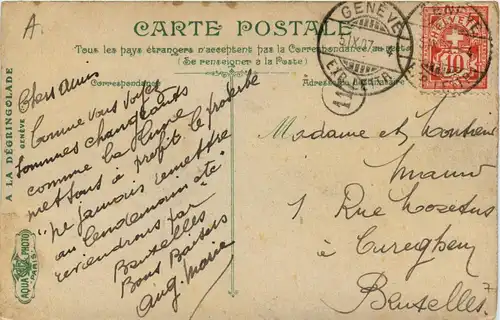 A.
CARTE POSTALE
Tous les pays étrangers n'acceptent pas la Correspondance au recto
(Se renseigner à la Poste)
Correspondance
Adresse
GENÈVE
IX.07
10
A LA DÉGRINGOLADE
GENÈVE
AQUA PHOTO
PARIS
Chers Amis
Comme vous voyez
sommes changeants
comme la lune
mettons à profit le proverbe
"ne jamais remettre
au lendemain etc"
reviendrons par
Bruxelles
Bons Baisers
Aug. Marie
Madame et Monsieur
1 Rue
à Cureghem
Bruxelles